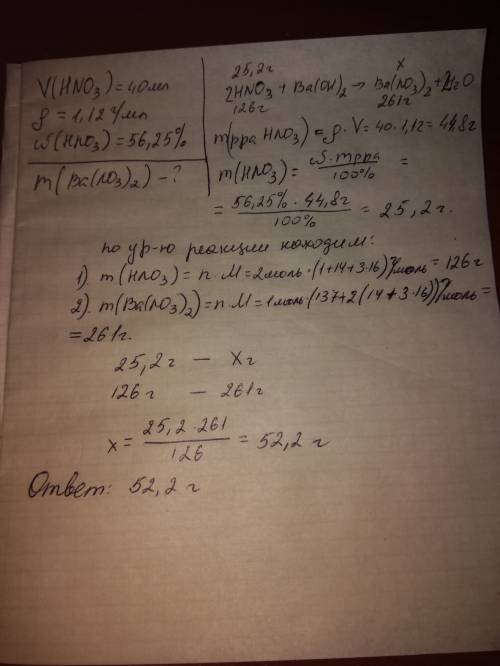 V(HNO₃) = 40мл
ρ = 1,12 г/мл
ω(HNO₃) = 56,25%
m(Ba(NO₃)₂) - ?
25,2г x
2HNO₃ + Ba(OH)₂ → Ba(NO₃)₂ + 2H₂O
126г 261г
m(р-ра HNO₃) = ρ · V = 40 · 1,12 = 44,8г
m(HNO₃) = ω · mр-ра / 100% =
= 56,25% · 44,8г / 100% = 25,2 г.
по ур-ю реакции находим:
1). m(HNO₃) = n · M = 2моль · (1+14+3·16)г/моль = 126г
2). m(Ba(NO₃)₂) = n · M = 1моль · (137+2(14+3·16))г/моль =
= 261г.
25,2 г — x г
126 г — 261 г
x = 25,2 · 261 / 126 = 52,2 г
Ответ: 52,2 г